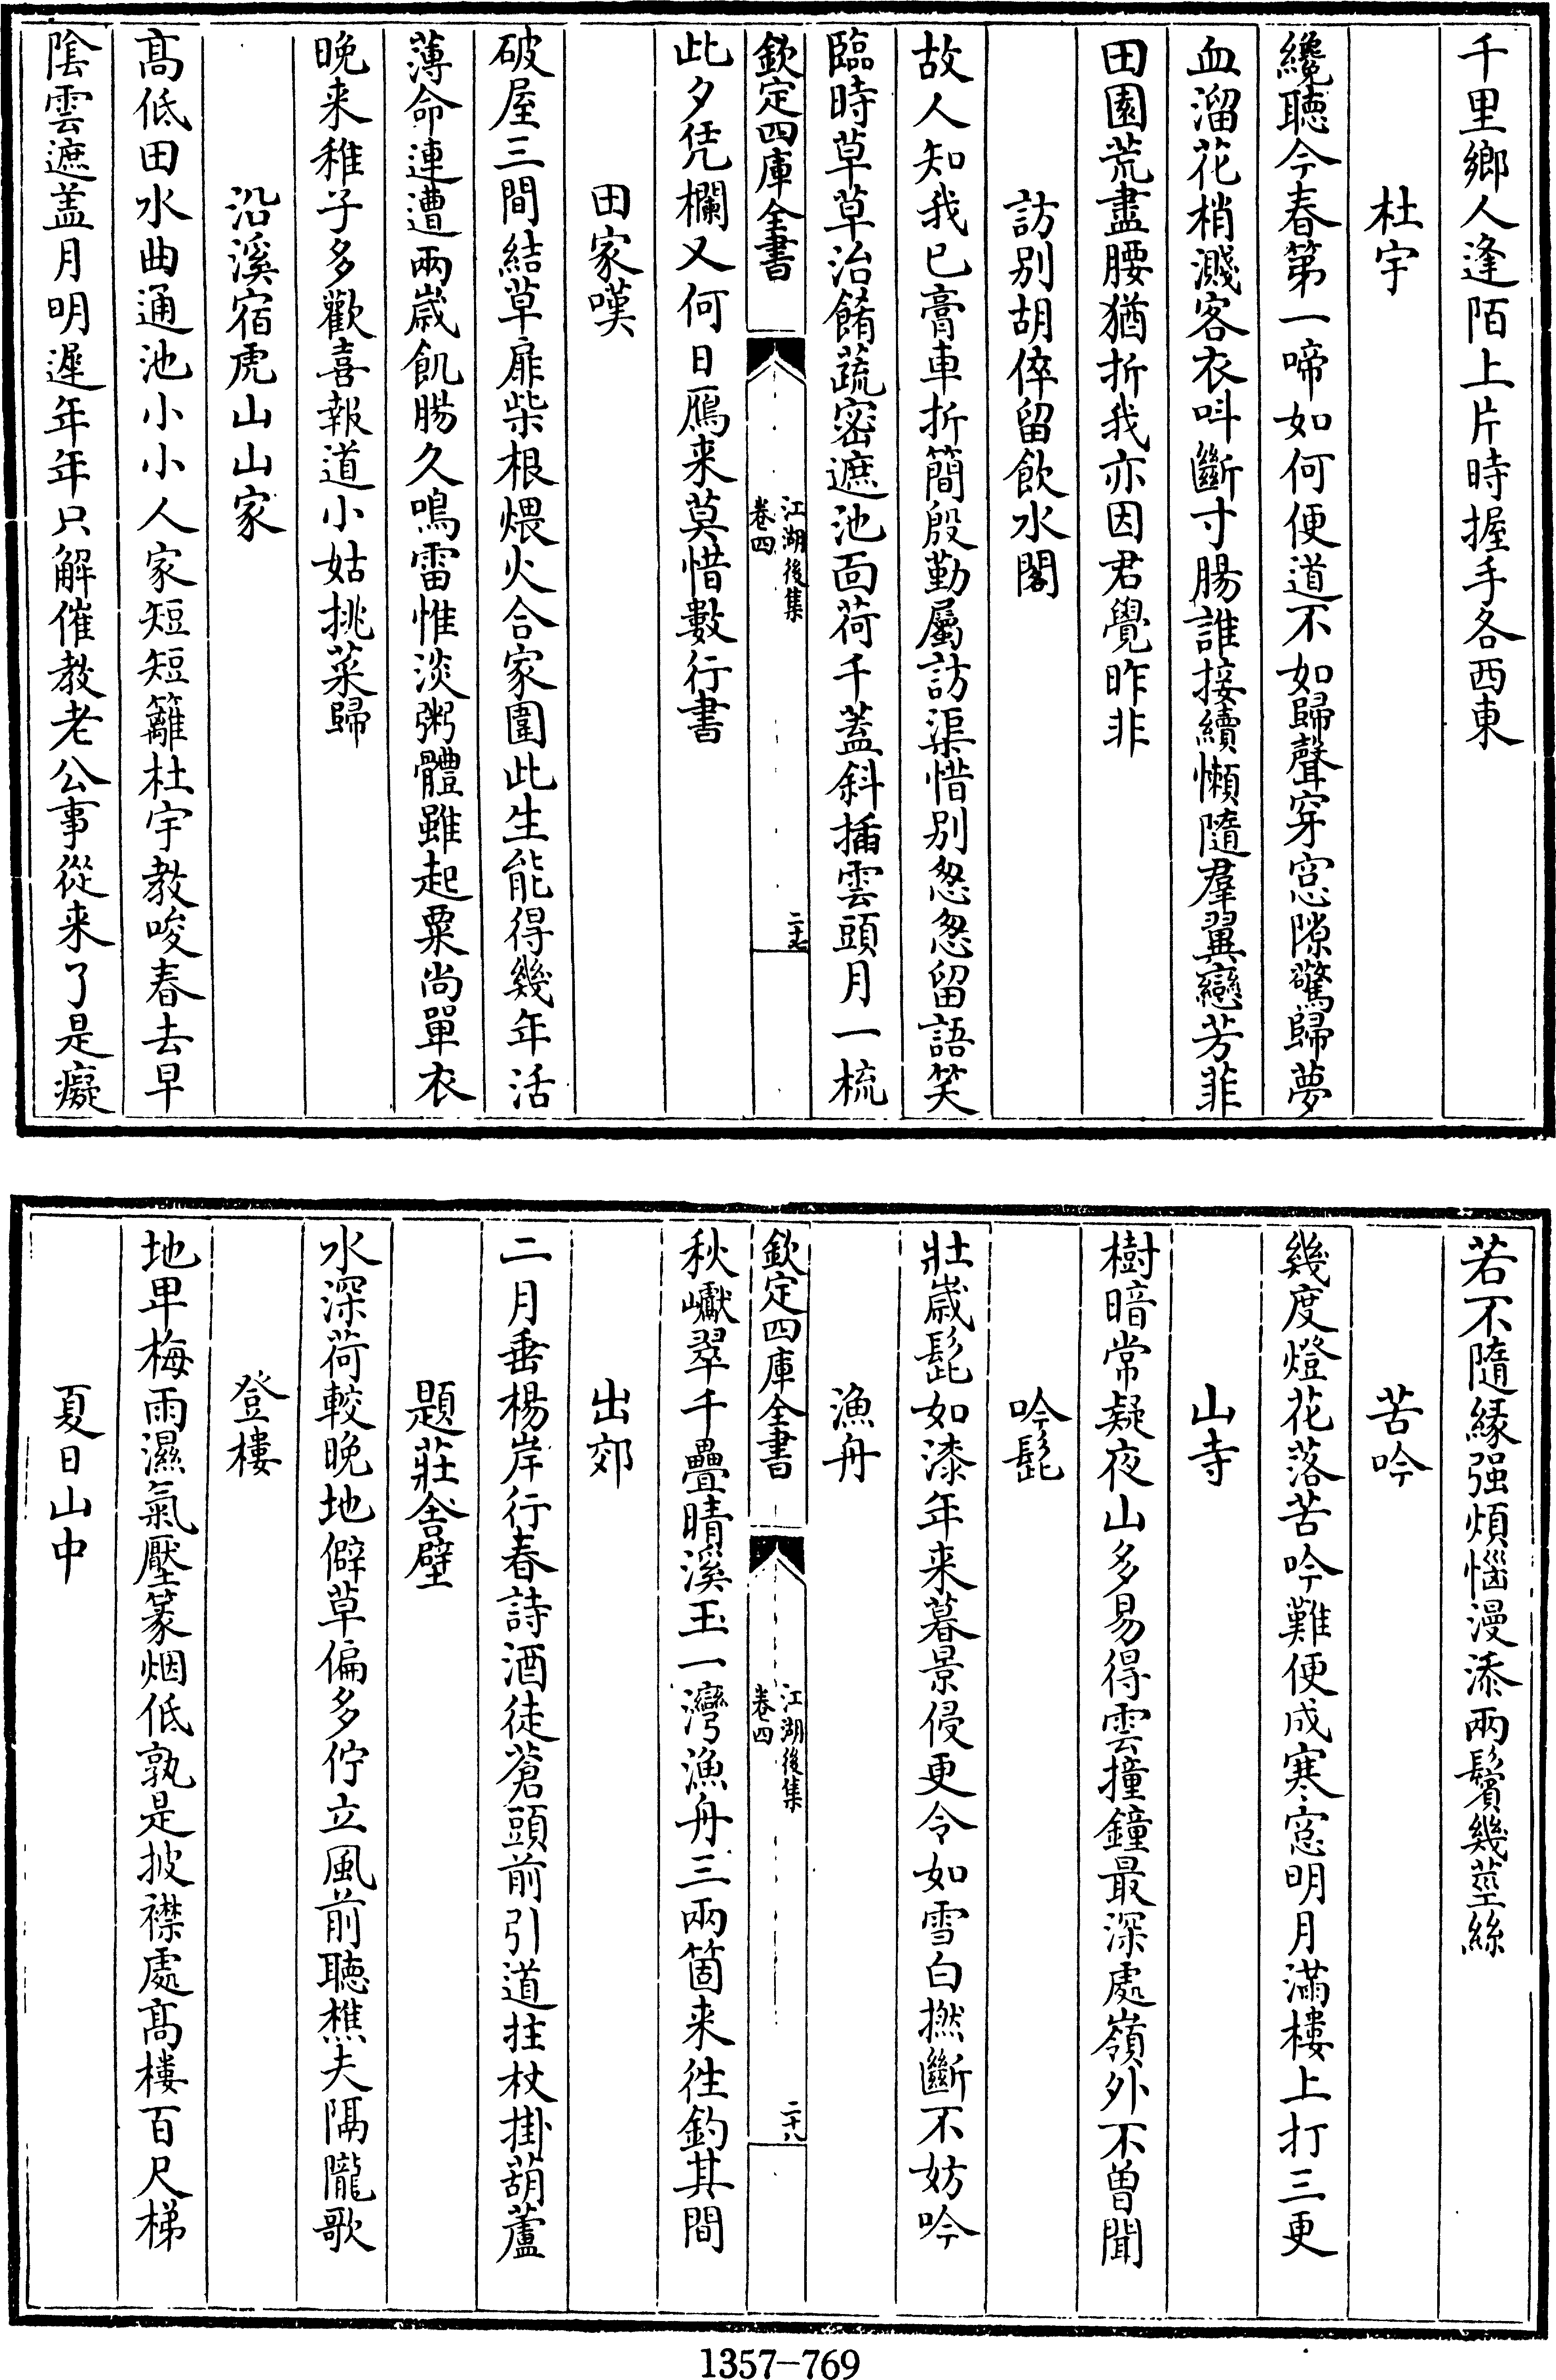 千里鄉人逢陌上片時握手各西東
杜宇
纔聽今春第一啼如何便道不如歸聲穿窓隙驚歸夢
血溜花梢濺客衣呌斷寸腸誰接續懶隨羣翼戀芳菲
田園荒盡腰猶折我亦因君覺昨非
訪別胡倅留飲水閣
故人知我已膏車折簡殷勤屬訪渠惜別怱怱留語笑
臨時草草治餚蔬密遮池面荷千蓋斜插雲頭月一梳
欽定四庫全書
江湖後集
卷四
二十七
此夕凭欄又何日鴈来莫惜數行書
田家嘆
破屋三間結草扉柴根煨火合家圍此生能得幾年活
薄命連遭兩歳飢腸久鳴雷惟淡粥體雖起粟尚單衣
晚来稚子多歡喜報道小姑挑菜歸
沿溪宿虎山山家
髙低田水曲通池小小人家短短籬杜宇教唆春去早
陰雲遮盖月明遲年年只解催教老公事從来了是癡
若不隨緣强煩惱漫添兩鬢幾莖絲
苦吟
幾度燈花落苦吟難便成寒窓明月滿樓上打三更
山寺
樹暗常疑夜山多易得雲撞鐘最深處嶺外不曾聞
吟髭
壯歳髭如漆年来暮景侵更令如雪白撚斷不妨吟
漁舟
欽定四庫全書
江湖後集
卷四
二十八
秋巘翠千疊晴溪玉一灣漁舟三兩箇来徃釣其間
出郊
二月垂楊岸行春詩酒徒蒼頭前引道拄杖掛葫蘆
題莊舍壁
水深荷較晚地僻草偏多佇立風前聽樵夫隔隴歌
登樓
地卑梅雨濕氣壓篆烟低孰是披襟處髙樓百尺梯
夏日山中
1357-769